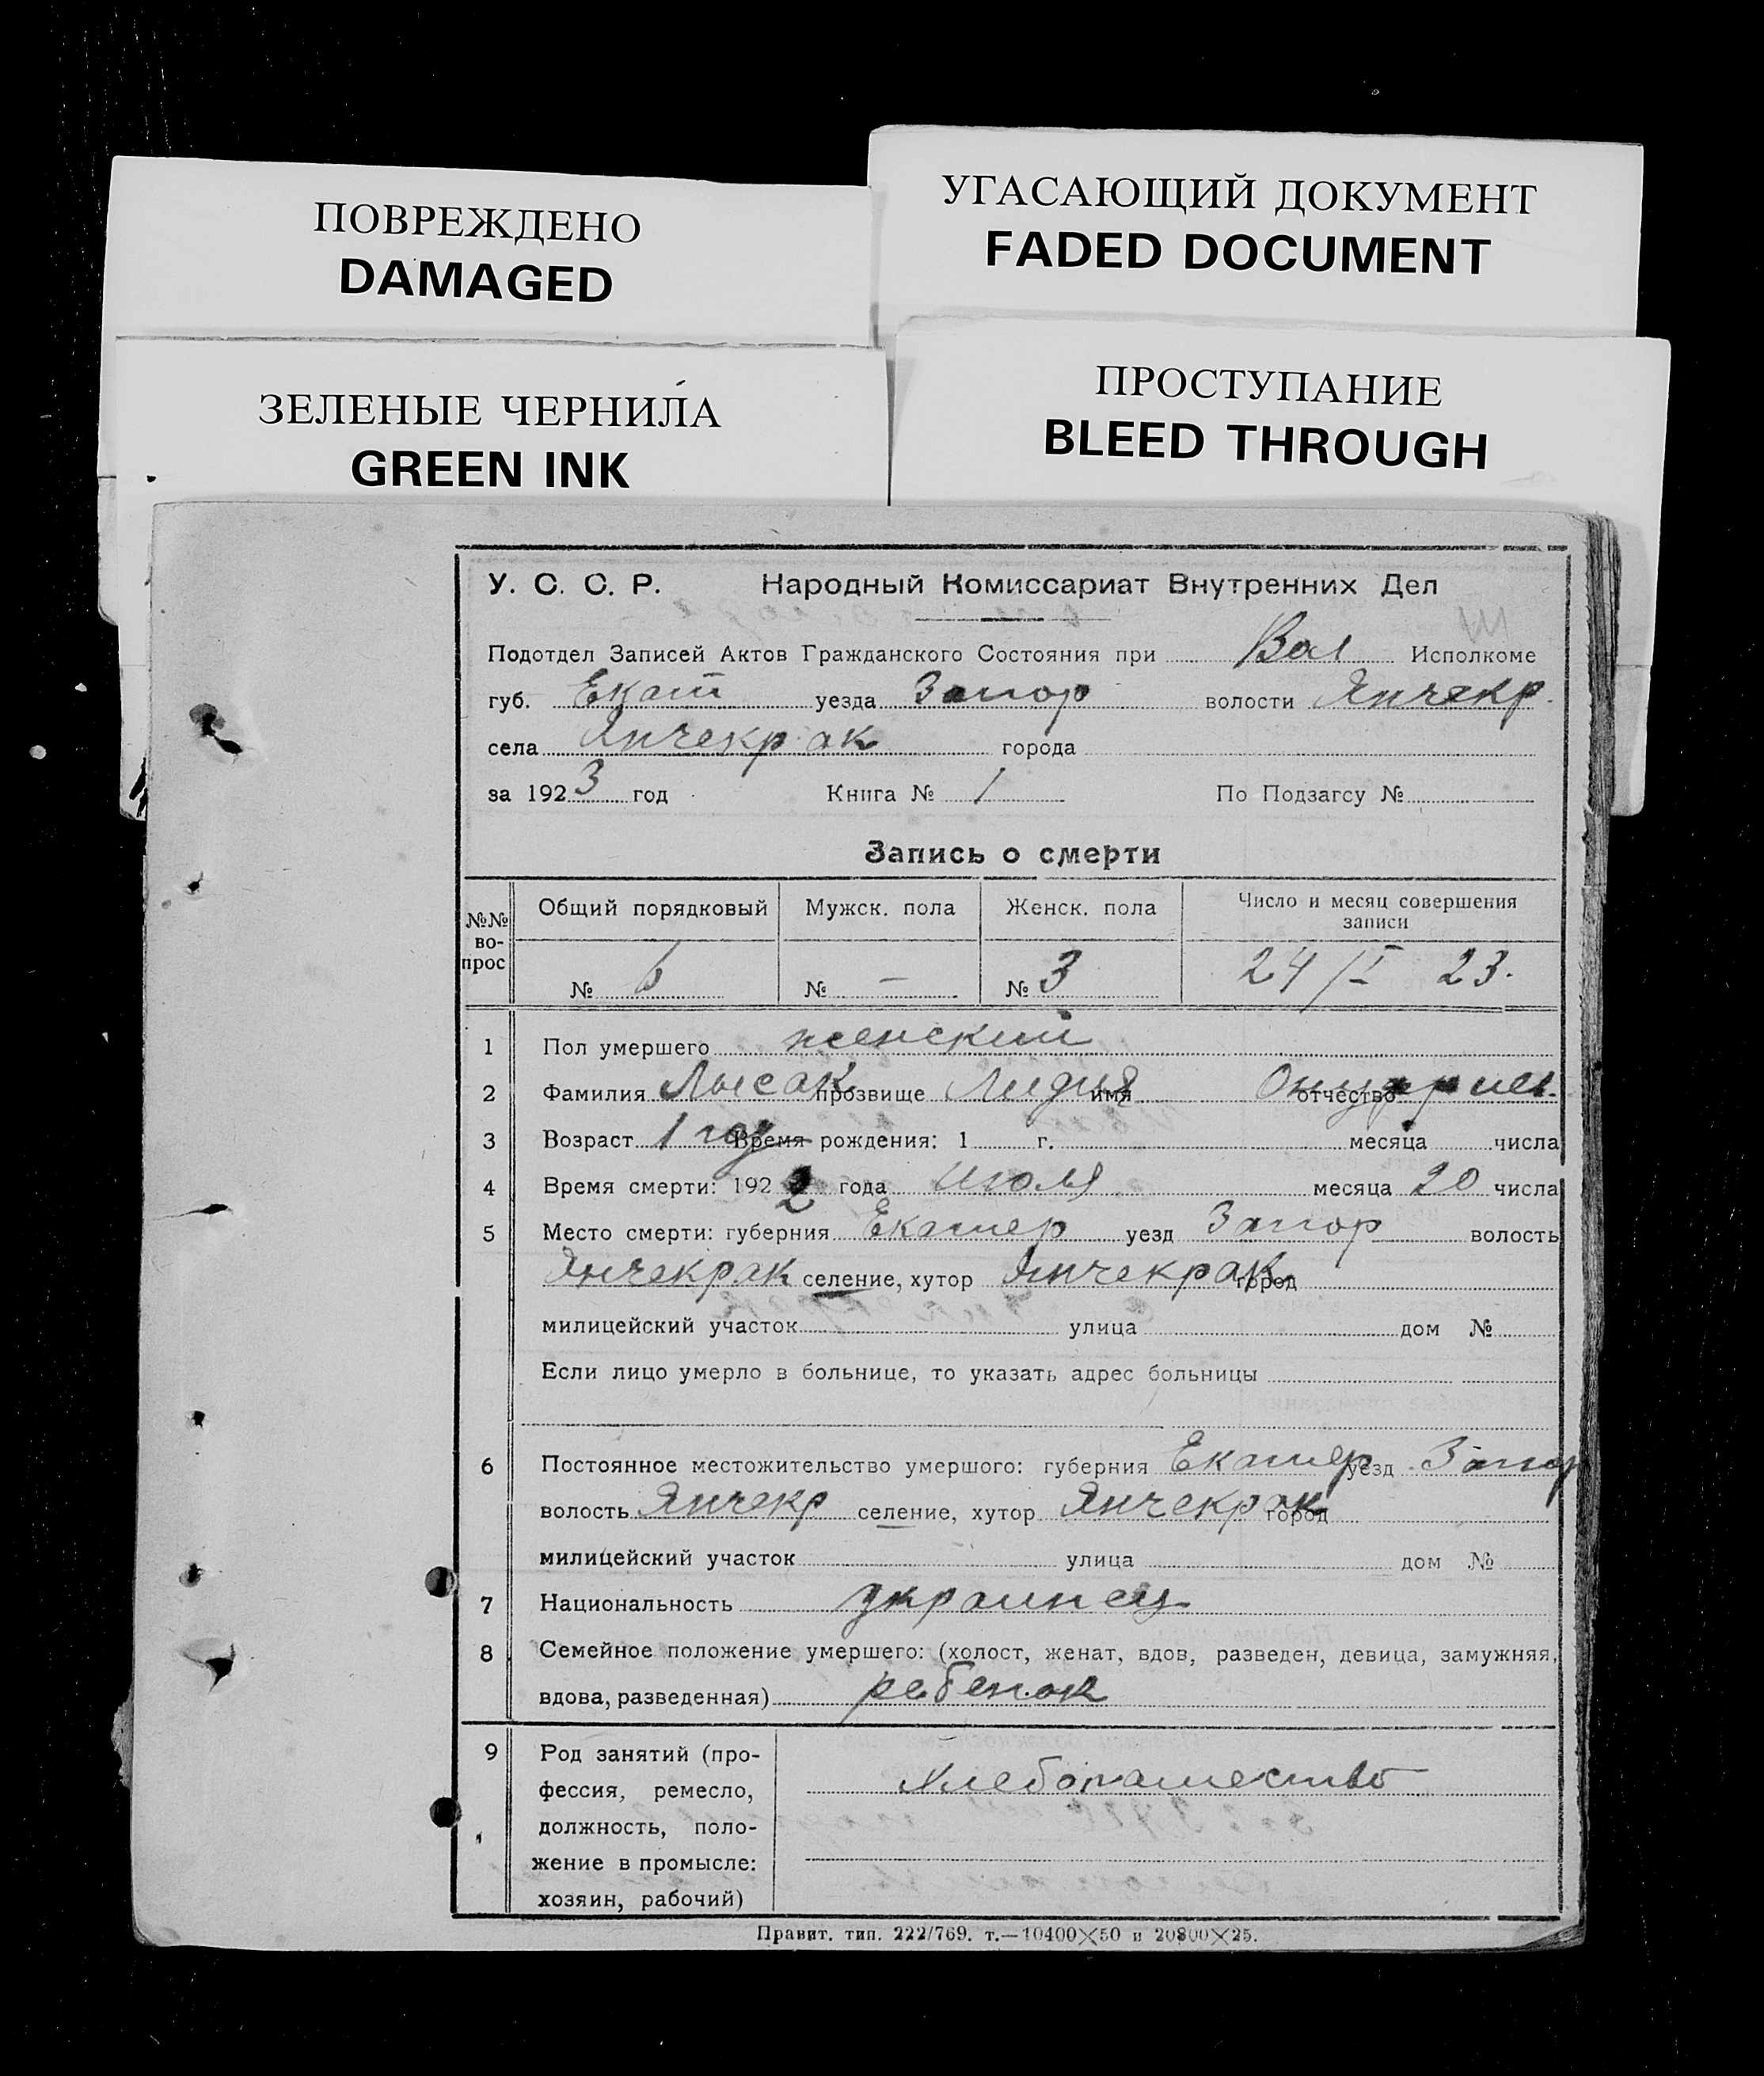 ПОВРЕЖДЕНО
DAMAGED
УГАСАЮЩИЙ ДОКУМЕНТ
FADED DOCUMENT
ЗЕЛЕНЫЕ ЧЕРНИЛА
GREEN INK
ПРОСТУПАНИЕ
BLEED THROUGH
У. С. С. Р. Народный Комиссариат Внутренних Дел
Подотдел Записей Актов Гражданского Состояния при Вол Исполкоме
губ. Екат уезда Запор волости Янчекр.
села Янчекрак города
за 1923 год Книга № 1 По Подзагсу №
Запись о смерти
№№ во-прос Общий порядковый Мужск. пола Женск. пола Число и месяц совершения записи
№ 6 № — № 3 24/I 23.
1 Пол умершего женский
2 Фамилия Лысак прозвище Лидия имя отчество
3 Возраст 1 год Время рождения: 1 г. месяца числа
4 Время смерти: 1922 года июля месяца 20 числа
5 Место смерти: губерния Екатер уезд Запор волость
Янчекрак селение, хутор Янчекрак город
милицейский участок улица дом №
Если лицо умерло в больнице, то указать адрес больницы
6 Постоянное местожительство умершого: губерния Екатер уезд Запор
волость Янчекр селение, хутор Янчекрак город
милицейский участок улица дом №
7 Национальность украинец
8 Семейное положение умершего: (холост, женат, вдов, разведен, девица, замужняя,
вдова, разведенная) ребенок
9 Род занятий (про-
фессия, ремесло, Хлебопашество
должность, поло-
жение в промысле:
хозяин, рабочий)
Правит. тип. 222/769. т.—10400×50 и 20800×25.